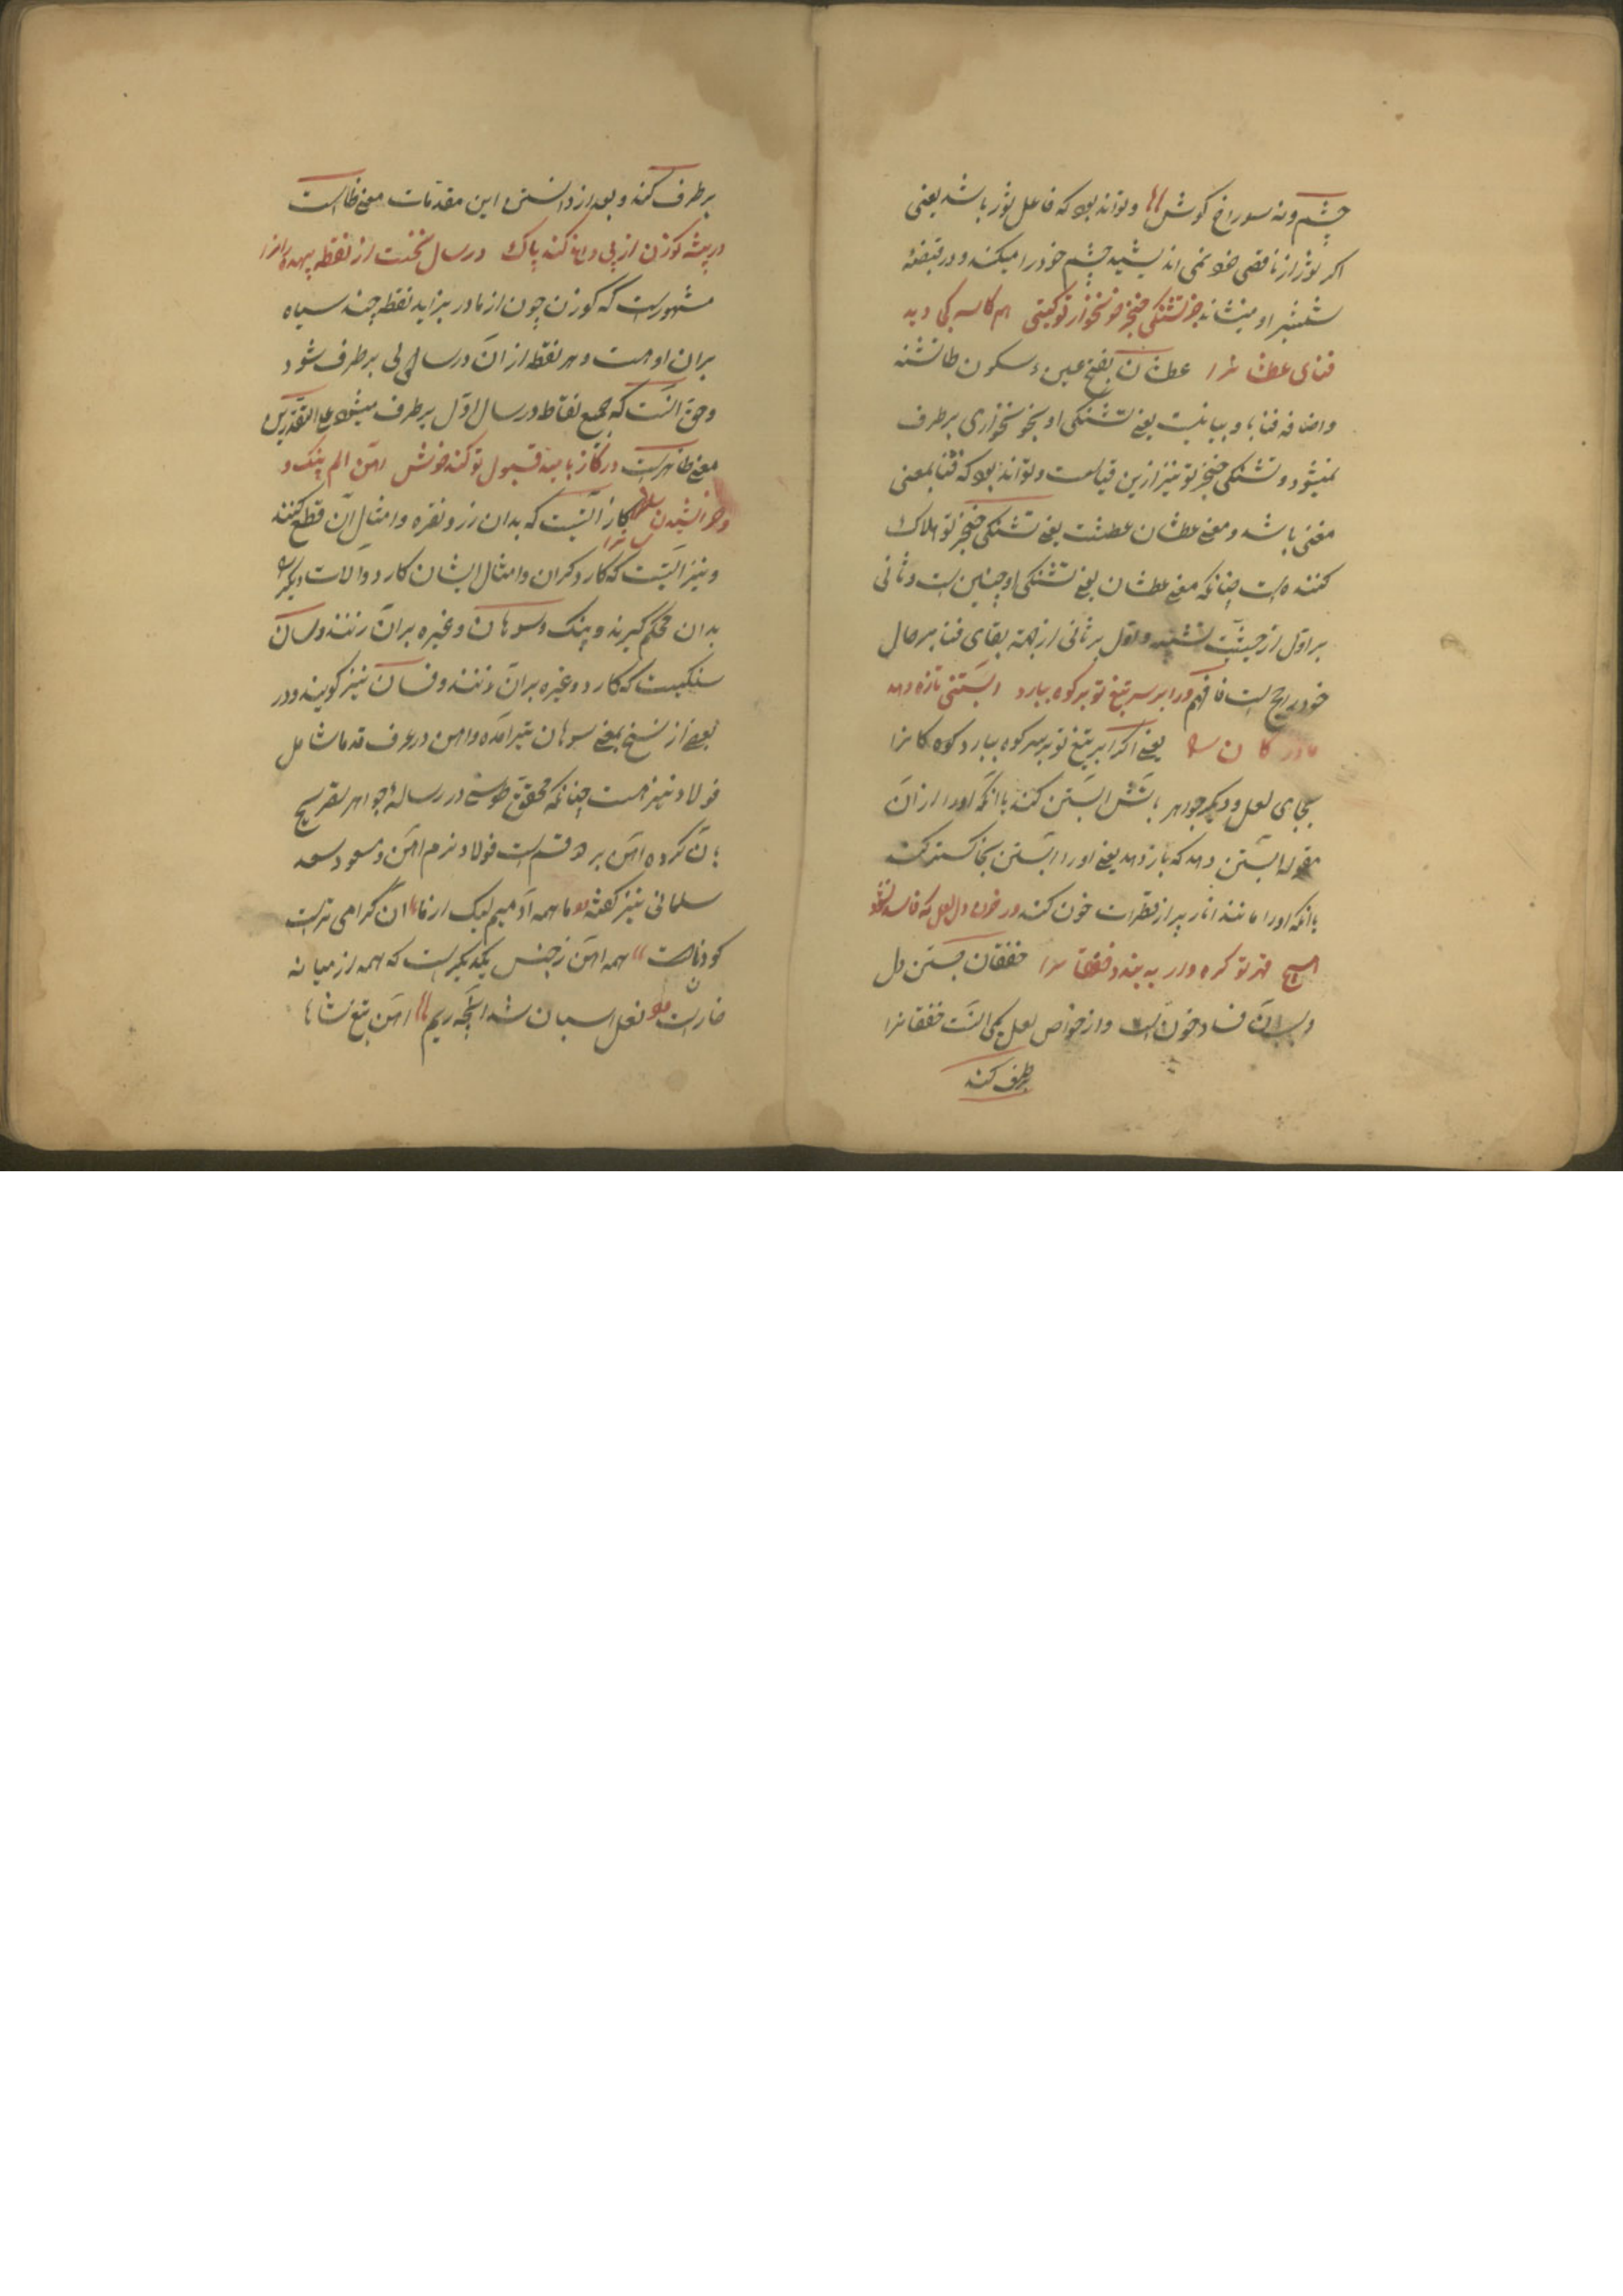 چشم ونه سوراخ کوش را وتواند بود که فاعل نور باشد یعنی
اکر نور از ناقصی خود نمی اندیشید چشم خود را میکند و در قبضهٔ
شمشیر او مینشاند جز تشنکی خنجر خونخوار تو کیتی هم کاسه کی دید
فنای عطشانرا عطشان بفتح عین و سکون طا تشنه
واضافه فنا با و بیانیست یعنی تشنکی او بخونخواری برطرف
نمیشود و تشنکی خنجر تو نیز ازین قبیلست وتواند بود که فنا بمعنی
مفنی باشد ومعنی عطشان عطشست یعنی تشنکی خنجر تو هلاک
کننده است چنانکه معنی عطشان یعنی تشنکی او چنین است وثانی
بر اول از حیثیت تشبیه و اول بر ثانی از جهة بقای فنا بر حال
خود راجح است فافهم ور ابر سر تیغ تو بر کوه ببارد آبستنی تازه دهد
مادر کان را یعنی اکر ابر تیغ تو بر سر کوه ببارد کوه کانرا
بجای لعل و دیکر جواهر باتش آبستن کند یا آنکه او را از آن
مقوله آبستن دهد که باز دهد یعنی او را آبستن بخاکستر کند
یا آنکه او را مانند انار پر از قطرات خون کند ور خون دل لعل که فاسد نشود
هیچ قهر تو کره وار به بندد خفقانرا خفقان جستن دل
وسبب آن فساد خون است و از خواص لعل یکی آنست خفقانرا
برطرف کند
برطرف کند و بعد از دانستن این مقدمات معنی ظاهرست
در بیشه کوزن از پی داغ کند پاک در سال نخست از نقطه بیهده رانرا
مشهورست که کوزن چون از مادر بزاید نقطه چند سیاه
بران او هست و هر نقطه از آن در سالی برطرف شود
وحق آنست که جمیع نقاط در سال اول برطرف میشود علی التقدیرین
معنی ظاهرست در کاز بامید قبول تو کند خوش آهن الم پتک و
خراشیدن سانرا کاز آنست که بدان زر و نقره و امثال آن قطع کنند
و نیز آنست که کارد کران و امثال ایشان کارد و آلات دیکر را
بدان محکم کیرند و پتک و سوهان و غیره بران زنند و سان
سنکیست که کارد و غیره بران زنند و فسان نیز کویند و در
بعضی از نسخ بمعنی سوهان نیز آمده و آهن در عرف قدما شامل
فولاد نیز هست چنانکه محقق طوسی در رساله جواهر تصریح
بآن کرده آهن بر دو قسم است فولاد و نرم آهن و مسعود سعد
سلمانی نیز کفته ما همه آدمیم لیک از ما آن کرامی ترست
کو داناست همه آهن ز جنس یکدیکرست که همه از میانه
خارست نعل اسبان شد آنچه ریم آهن تیغ شاها